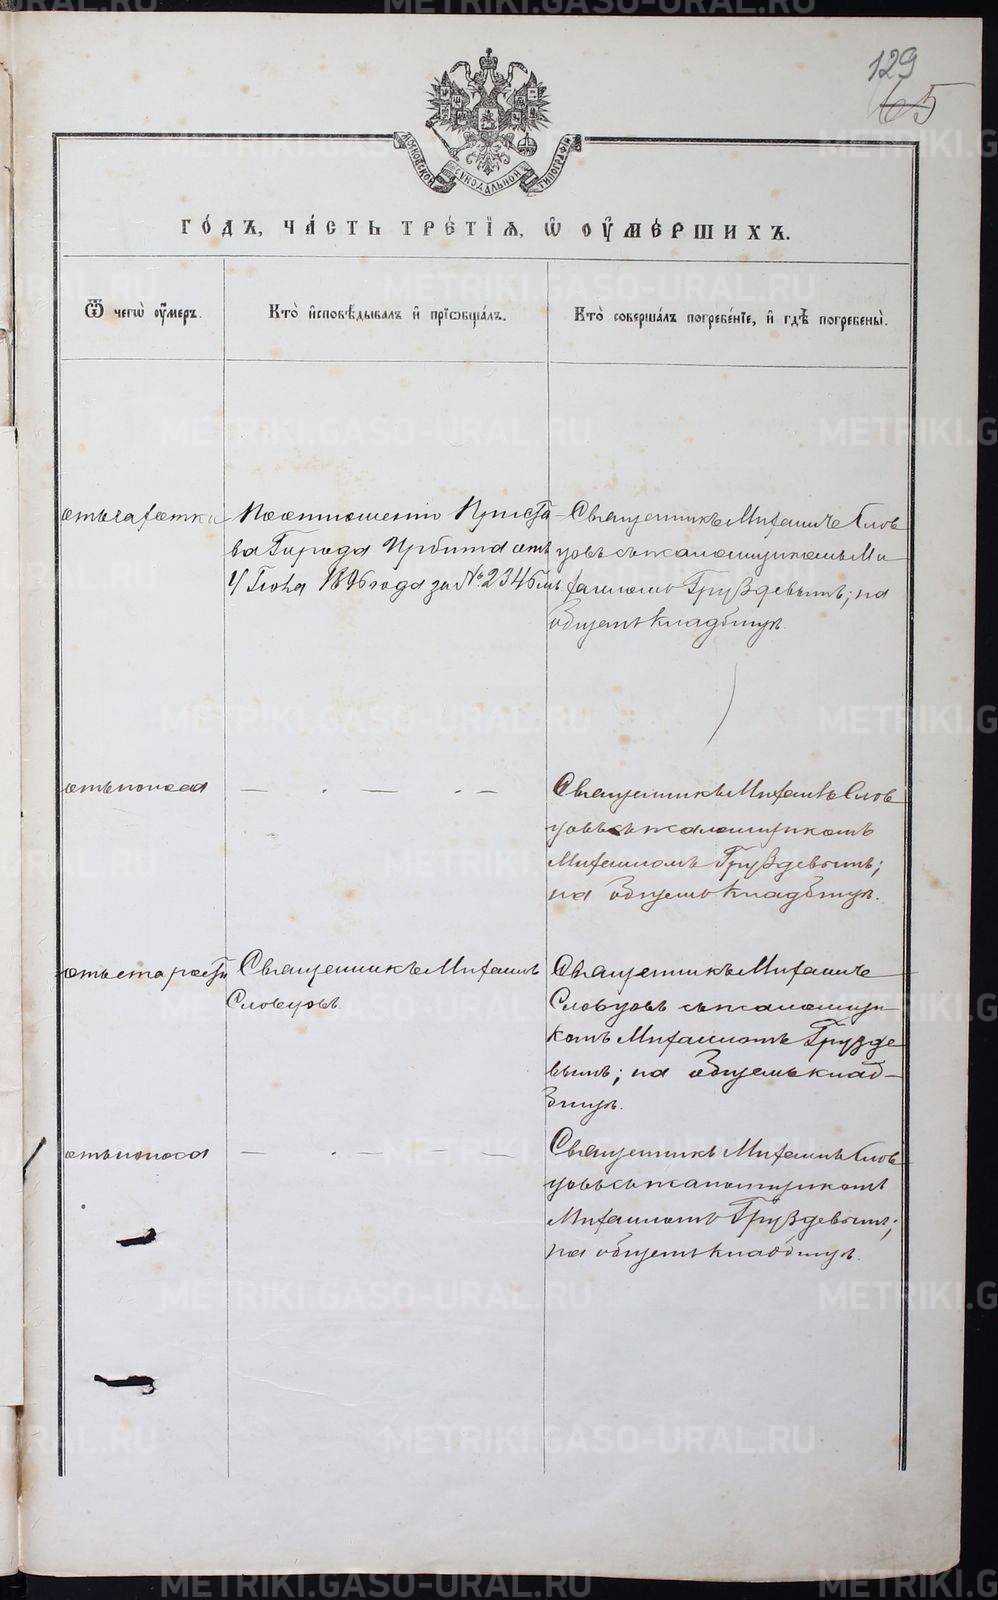 129
65
МОСКОВСКОЙ СѴНОДАЛЬНОЙ ТИПОГРАФІИ
ГО́ДЪ, ЧА́СТЬ ТРЕ́ТІЯ, Ѡ҆ ОУ҆МЕ́РШИХЪ.
Ѿ чегѡ̀ оу҆́меръ.
Кто̀ и҆сповѣ́дывалъ и҆ прїѡбща́лъ.
Кто̀ соверша́лъ погребе́нїе, и҆ гдѣ̀ погребены̀.
отъ чахотки
По отношенію Приста
ва Города Ирбита отъ
4 Іюня 1896 года за № 2345мъ
Священникъ Михаилъ Слов
цовъ съ псаломщикомъ Ми
хаиломъ Груздевымъ; на
общемъ кладбищѣ.
отъ поноса
— . — . —
Священникъ Михаилъ Слов
цовъ съ псаломщикомъ
Михаиломъ Груздевымъ;
на общемъ кладбищѣ.
отъ старости
Священникъ Михаилъ
Словцовъ.
Священникъ Михаилъ
Словцовъ съ псаломщи
комъ Михаиломъ Грузде
вымъ; на общемъ клад–
бищѣ.
отъ поноса
— . — — —
Священникъ Михаилъ Слов
цовъ съ псаломщикомъ
Михаиломъ Груздевымъ;
на общемъ кладбищѣ.
METRIKI.GASO-URAL.RU